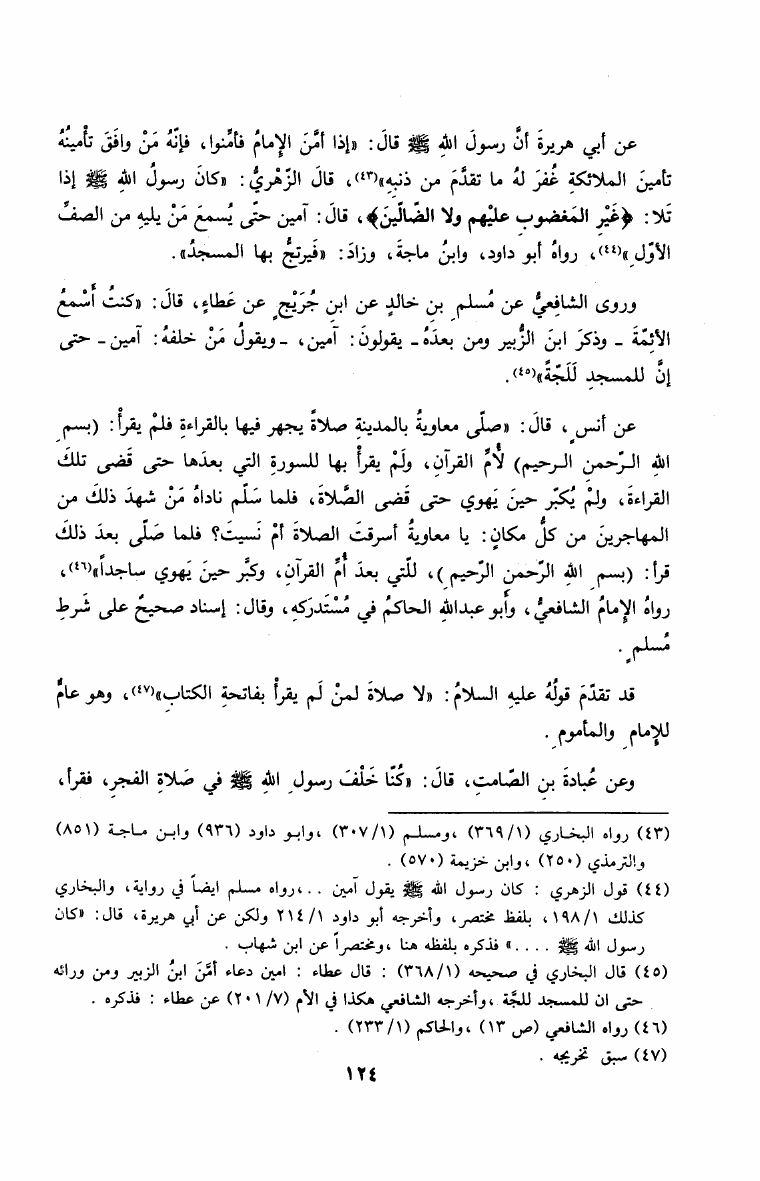 عن أبي هريرةَ أنَّ رسولَ اللهِ ﷺ قالَ: «إذا أمَّنَ الإمامُ فأمِّنوا، فإنّهُ مَنْ وافَقَ تأْمينُهُ
تأمينَ الملائكةِ غُفرَ لهُ ما تقدَّمَ من ذنبهِ»(٤٣)، قالَ الزّهْريُّ: «كانَ رسولُ اللهِ ﷺ إذا
تَلا: ﴿غَيْرِ المَغضوبِ عليْهم ولا الضّالّينَ﴾، قالَ: آمين حتّى يُسمعَ مَنْ يليهِ من الصفِّ
الأوّلِ»(٤٤)، رواهُ أبو داود، وابنُ ماجةَ، وزادَ: «فَيرتجُّ بها المسجدُ».
وروى الشافعيُّ عن مُسلمِ بنِ خالدٍ عن ابنِ جُرَيْجٍ عن عَطاءٍ، قالَ: «كنتُ أَسْمعُ
الأئِمّةَ - وذكرَ ابنَ الزُّبيرِ ومن بعدَهُ - يقولونَ: آمين، -ويقولُ مَنْ خلفهُ: آمين - حتى
إنَّ للمسجدِ لَلَجّةً»(٤٥).
عن أنسٍ، قالَ: «صلّى معاويةُ بالمدينةِ صلاةً يجهر فيها بالقراءةِ فلمْ يقرأْ: (بسمِ
اللهِ الـرّحمنِ الـرحيم) لأُمِّ القرآنِ، ولَمْ يقرأْ بها للسورةِ التي بعدَها حتى قَضى تلكَ
القراءةَ، ولمْ يُكبّر حينَ يَهوي حتى قَضى الصَّلاةَ، فلما سَلّم ناداهُ مَنْ شهدَ ذلكَ من
المهاجرينَ من كلِّ مكانٍ: يا معاويةُ أسرقتَ الصلاةَ أمْ نَسيتَ؟ فلما صَلّى بعدَ ذلكَ
قرأ: (بسمِ اللهِ الرّحمنِ الرّحيم)، للّتي بعدَ أُمِّ القرآنِ، وكبَّر حينَ يَهوي ساجداً»(٤٦)،
رواهُ الإمامُ الشافعيُّ، وأبو عبداللهِ الحاكمُ في مُسْتَدرَكهِ، وقال: إسناد صحيحٌ على شَرطِ
مُسلمٍ.
قد تقدّمَ قولُهُ عليهِ السلامُ: «لا صلاةَ لمنْ لَم يقرأْ بفاتحةِ الكتابِ»(٤٧)، وهو عامٌّ
للإِمامِ والمأمومِ.
وعن عُبادةَ بنِ الصّامتِ، قالَ: «كُنّا خَلْفَ رسولِ اللهِ ﷺ في صَلاةِ الفجرِ، فقرأ،
(٤٣) رواه البخاري (٣٦٩/١) ،ومسلم (٣٠٧/١) ،وابو داود (٩٣٦) وابن ماجة (٨٥١)
والترمذي (٢٥٠) ،وابن خزيمة (٥٧٠) .
(٤٤) قول الزهري : كان رسول الله ﷺ يقول آمين ..،رواه مسلم ايضاً في رواية، والبخاري
كذلك ١٩٨/١، بلفظ مختصر، وأخرجه أبو داود ٢١٤/١ ولكن عن أبي هريرة، قال: «كان
رسول الله ﷺ ....» فذكره بلفظه هنا ،ومختصراً عن ابن شهاب .
(٤٥) قال البخاري في صحيحه (٣٦٨/١) : قال عطاء : امين دعاء أمَّنَ ابنُ الزبير ومن ورائه
حتى ان للمسجد للجَّة ،وأخرجه الشافعي هكذا في الأم (٢٠١/٧) عن عطاء : فذكره .
(٤٦) رواه الشافعي (ص ١٣) ،والحاكم (٢٣٣/١) .
(٤٧) سبق تخريجه .
١٢٤